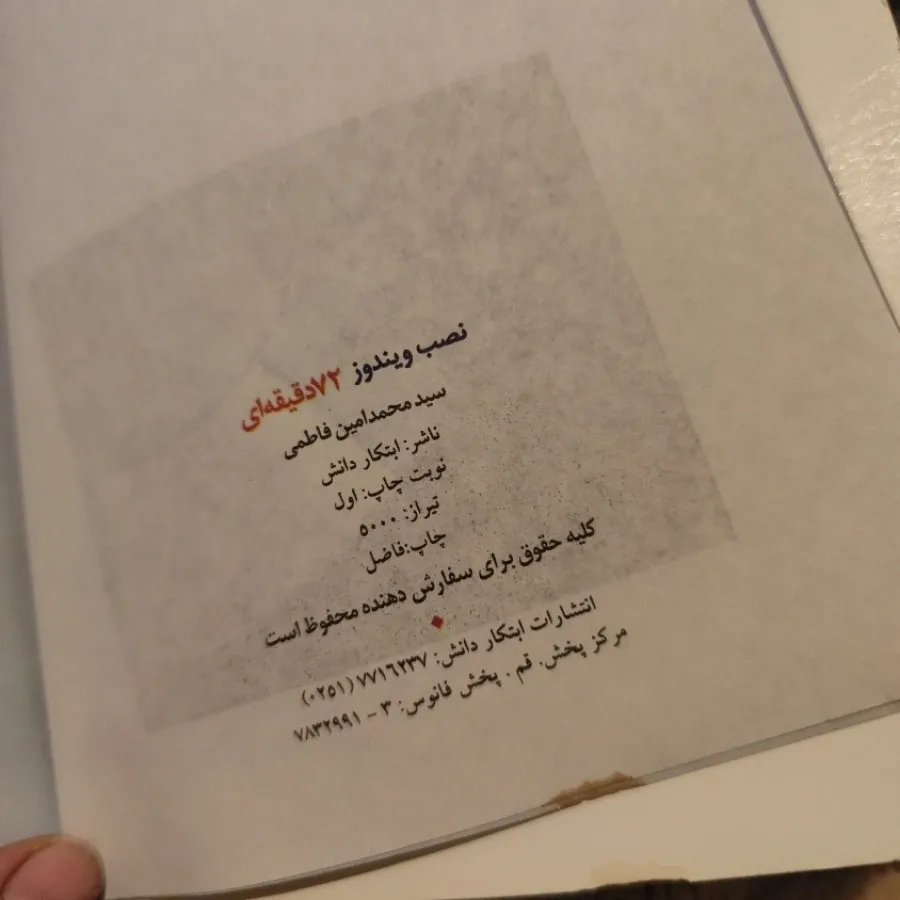 نصب ویندوز ۷۲دقیقه‌ای
سید محمدامین فاطمی
ناشر: ابتکار دانش
نوبت چاپ: اول
تیراژ: ۵۰۰۰
چاپ:فاضل
کلیه حقوق برای سفارش دهنده محفوظ است
انتشارات ابتکار دانش: ۷۷۱۶۲۳۷ (۰۲۵۱)
مرکز پخش. قم . پخش فانوس: ۳ - ۷۸۳۲۹۹۱